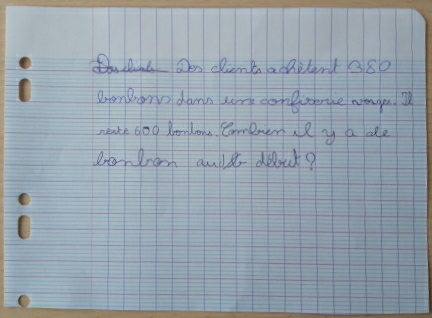 Des clients Des clients achètent 380
bonbons dans une confiserie rouge. Il
reste 600 bonbons. Combien il y a de
bonbon au début ?